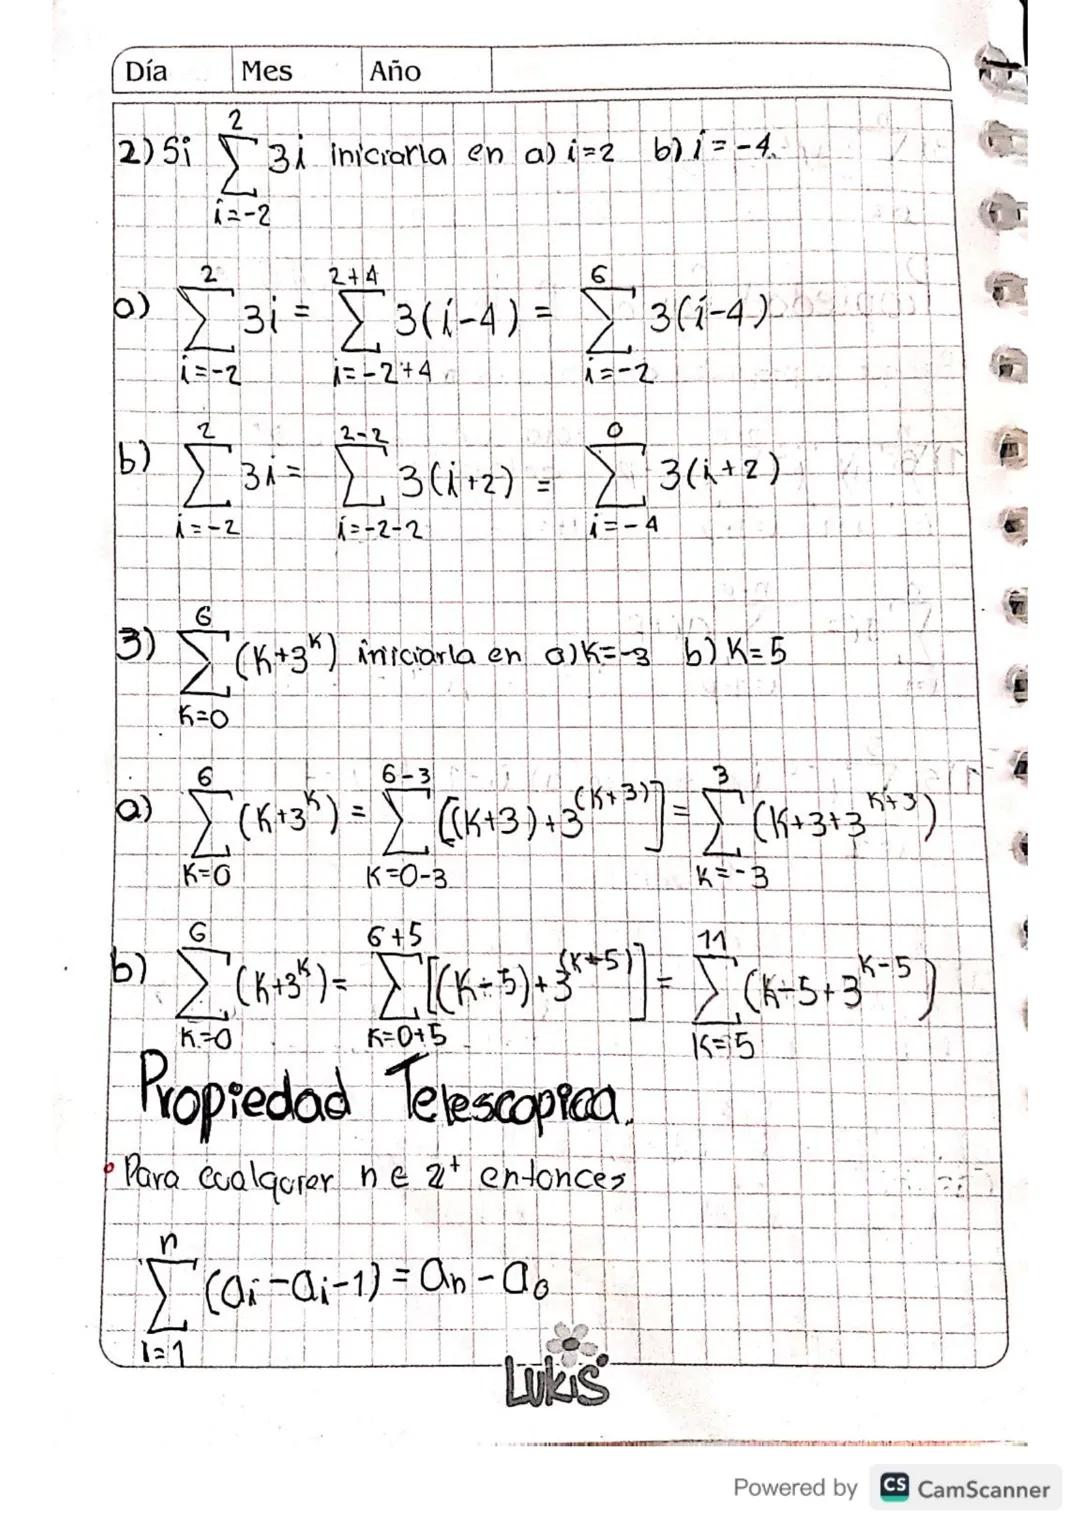 Día Mes Año
2) Si ∑_{i=-2}^{2} 3i iniciarla en a) i=2 b) i=-4.
a) ∑_{i=-2}^{2} 3i = ∑_{i=-2+4}^{2+4} 3(i-4) = ∑_{i=-2}^{6} 3(i-4)
b) ∑_{i=-2}^{2} 3i = ∑_{i=-2-2}^{2-2} 3(i+2) = ∑_{i=-4}^{0} 3(i+2)
3) ∑_{K=0}^{6} (K+3^K) iniciarla en a) K=-3 b) K=5
a) ∑_{K=0}^{6} (K+3^K) = ∑_{K=0-3}^{6-3} [(K+3)+3^{(K+3)}] = ∑_{K=-3}^{3} (K+3+3^{K+3})
b) ∑_{K=0}^{6} (K+3^K) = ∑_{K=0+5}^{6+5} [(K-5)+3^{(K-5)}] = ∑_{K=5}^{11} (K-5+3^{K-5})
Propiedad Telescopica.
• Para cualquier n ∈ Z⁺ entonces
∑_{i=1}^{n} (a_i - a_i-1) = a_n - a_0
Lukis
Powered by CS CamScanner